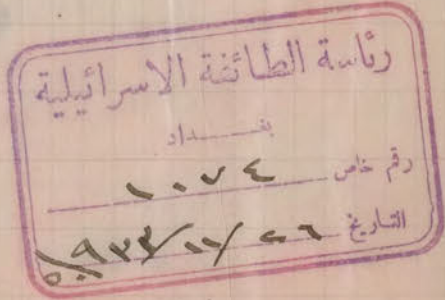 رئاسة الطائفة الاسرائيلية
بغـــداد
رقم خاص ١٠٧٤
التاريخ ٢٦/